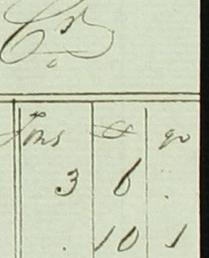 Cr
Tons C qr
3 6 .
. 10 1